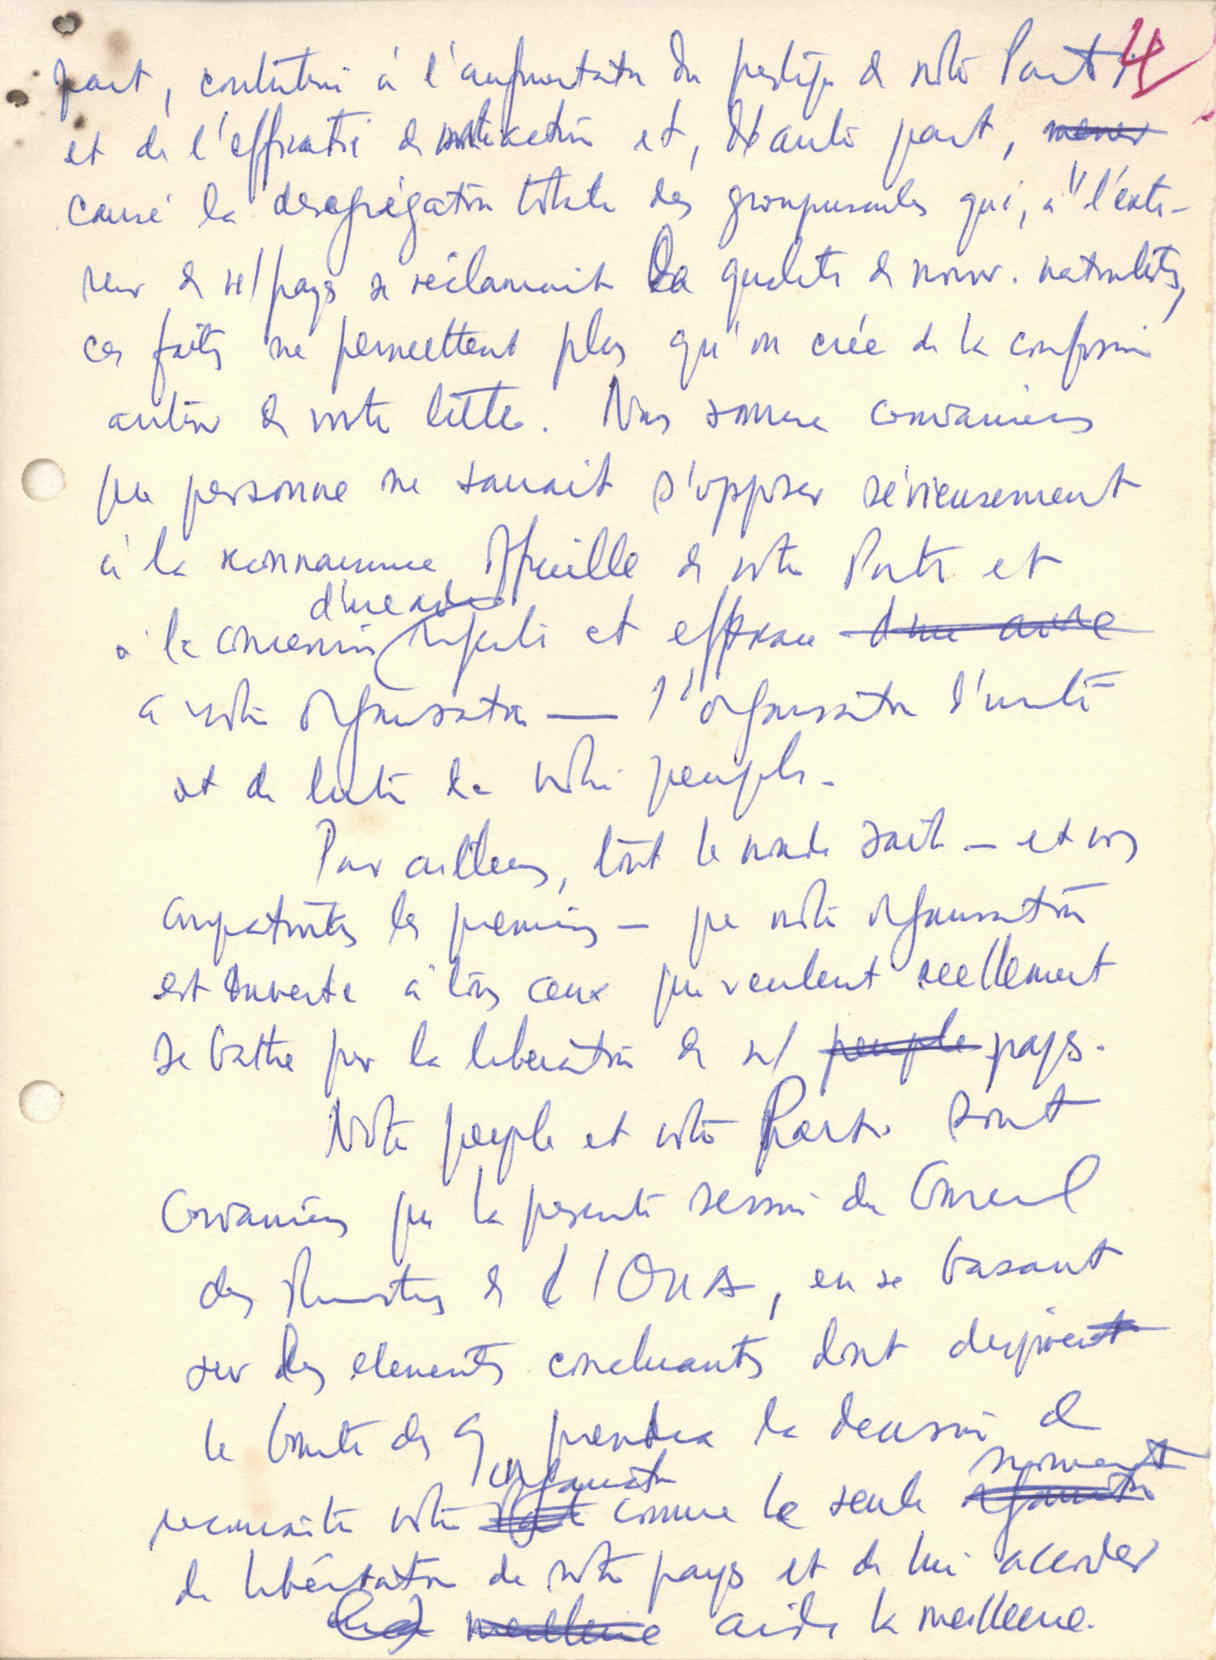 4
part, contribué à l'augmentation du prestige de notre Parti
et de l'efficacité de notre action et, d'autre part, mener
causé la desagrégation totale des groupuscules qui, à l'exté-
rieur de n/pays se réclamait la qualité de mouv. nationalistes,
ces faits ne permettent plus qu'on crée de la confusion
autour de notre lutte. Nous sommes convaincus
que personne ne saurait s'opposer sérieusement
à la reconnaissance officielle de notre Parti et
d'une aide
à la concession régulière et efficace d'une aide
à notre organisation — l'organisation d'unité
et de lutte de notre peuple.
Par ailleurs, tout le monde sait — et nos
compatriotes les premiers — que notre organisation
est ouverte à tous ceux qui veulent reellement
se battre pour la libération de n/ peuple pays.
Notre peuple et notre Parti sont
convaincus que la présente session du Conseil
des Ministres de l'OUA, en se basant
sur des elements concluants dont dispose
le Comité des 9 prendra la decision de
organisation mouvement
reconnaitre notre comme le seule organisation
de libération de notre pays et de lui accorder
meilleure aide la meilleure.